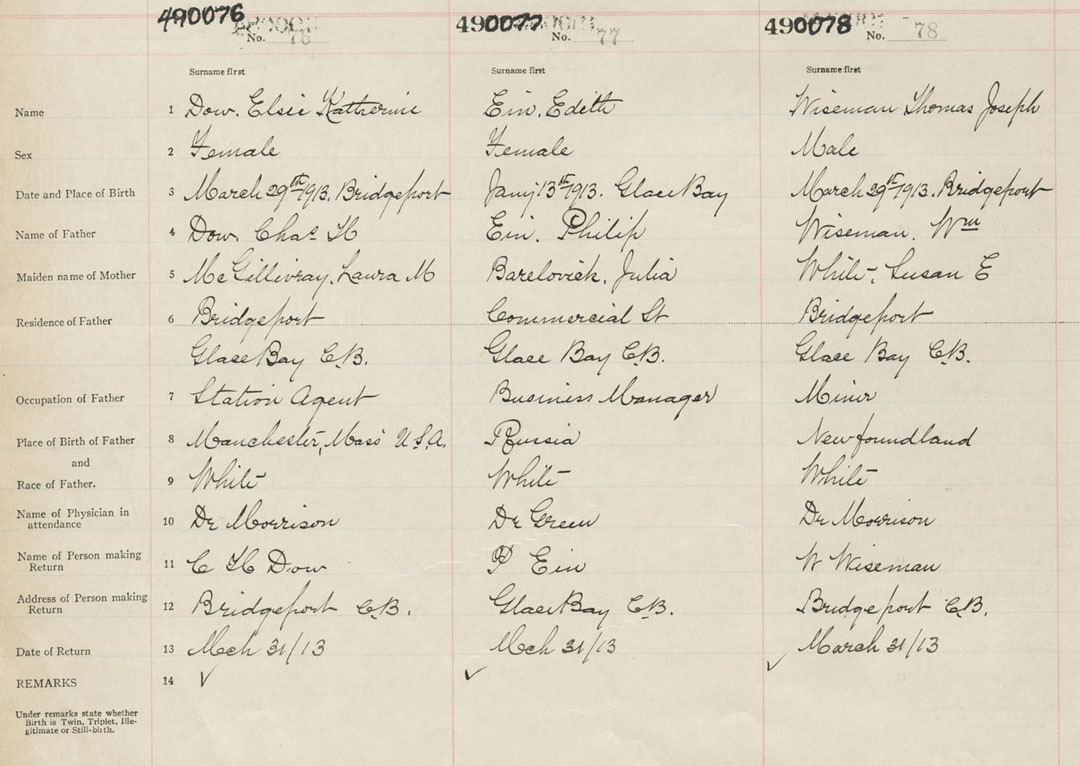 490076 490077 490078
No. 76 No. 77 No. 78
Surname first Surname first Surname first
Name 1 Dow. Elsie Katherine Ein, Edith Wiseman Thomas Joseph
Sex 2 Female Female Male
Date and Place of Birth 3 March 29th 1913. Bridgeport Jany 13th 1913. Glace Bay March 29th 1913. Bridgeport
Name of Father 4 Dow. Chas H Ein. Philip Wiseman. Wm
Maiden name of Mother 5 McGillivray, Laura M Barelovick, Julia White, Susan E
Residence of Father 6 Bridgeport Commercial St Bridgeport
Glace Bay C.B. Glace Bay C.B. Glace Bay C.B.
Occupation of Father 7 Station Agent Business Manager Miner
Place of Birth of Father 8 Manchester, Mass U.S.A. Russia Newfoundland
and
Race of Father. 9 White White White
Name of Physician in
attendance 10 Dr Morrison Dr Green Dr Morrison
Name of Person making
Return 11 C H Dow P Ein W Wiseman
Address of Person making
Return 12 Bridgeport C.B. Glace Bay C.B. Bridgeport C.B.
Date of Return 13 Mch 31/13 Mch 31/13 March 31/13
REMARKS 14 ✓ ✓ ✓
Under remarks state whether
Birth is Twin, Triplet, Ille-
gitimate or Still-birth.